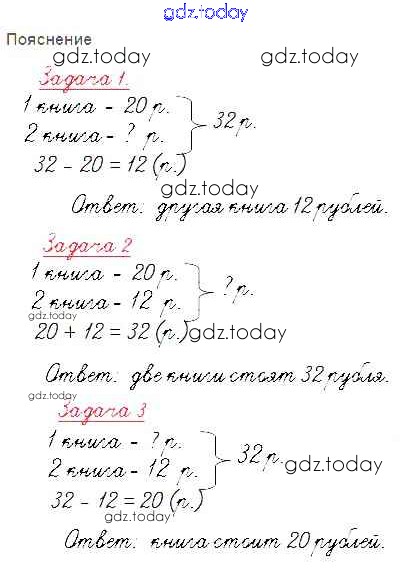 gdz.today
Пояснение
gdz.today gdz.today
Задача 1.
1 книга - 20 р.
2 книга - ? р.
32 р.
32 - 20 = 12 (р.)
gdz.today
Ответ: другая книга 12 рублей.
Задача 2
1 книга - 20 р.
2 книга - 12 р.
? р.
gdz.today
20 + 12 = 32 (р.) gdz.today
Ответ: две книги стоят 32 рубля.
gdz.today
Задача 3
1 книга - ? р.
2 книга - 12 р.
32 р.
gdz.today
32 - 12 = 20 (р.)
gdz.today
Ответ: книга стоит 20 рублей.